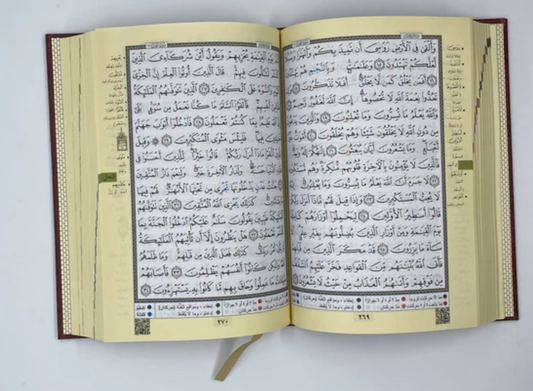 وَأَلْقَىٰ فِي الْأَرْضِ رَوَاسِيَ أَن تَمِيدَ بِكُمْ وَأَنْهَارًا وَسُبُلًا
لَّعَلَّكُمْ تَهْتَدُونَ ١٥ وَعَلَامَاتٍ وَبِالنَّجْمِ هُمْ يَهْتَدُونَ ١٦
أَفَمَن يَخْلُقُ كَمَن لَّا يَخْلُقُ أَفَلَا تَذَكَّرُونَ ١٧ وَإِن
تَعُدُّوا نِعْمَةَ اللَّهِ لَا تُحْصُوهَا إِنَّ اللَّهَ لَغَفُورٌ رَّحِيمٌ ١٨
وَاللَّهُ يَعْلَمُ مَا تُسِرُّونَ وَمَا تُعْلِنُونَ ١٩ وَالَّذِينَ يَدْعُونَ
مِن دُونِ اللَّهِ لَا يَخْلُقُونَ شَيْئًا وَهُمْ يُخْلَقُونَ ٢٠ أَمْوَاتٌ غَيْرُ
أَحْيَاءٍ وَمَا يَشْعُرُونَ أَيَّانَ يُبْعَثُونَ ٢١ إِلَٰهُكُمْ إِلَٰهٌ وَاحِدٌ
فَالَّذِينَ لَا يُؤْمِنُونَ بِالْآخِرَةِ قُلُوبُهُم مُّنكِرَةٌ وَهُم مُّسْتَكْبِرُونَ
٢٢ لَا جَرَمَ أَنَّ اللَّهَ يَعْلَمُ مَا يُسِرُّونَ وَمَا يُعْلِنُونَ إِنَّهُ لَا
يُحِبُّ الْمُسْتَكْبِرِينَ ٢٣ وَإِذَا قِيلَ لَهُم مَّاذَا أَنزَلَ رَبُّكُمْ
قَالُوا أَسَاطِيرُ الْأَوَّلِينَ ٢٤ لِيَحْمِلُوا أَوْزَارَهُمْ كَامِلَةً
يَوْمَ الْقِيَامَةِ وَمِنْ أَوْزَارِ الَّذِينَ يُضِلُّونَهُم بِغَيْرِ عِلْمٍ أَلَا
سَاءَ مَا يَزِرُونَ ٢٥ قَدْ مَكَرَ الَّذِينَ مِن قَبْلِهِمْ
فَأَتَى اللَّهُ بُنْيَانَهُم مِّنَ الْقَوَاعِدِ فَخَرَّ عَلَيْهِمُ السَّقْفُ
مِن فَوْقِهِمْ وَأَتَاهُمُ الْعَذَابُ مِنْ حَيْثُ لَا يَشْعُرُونَ ٢٦
٢٦٩
ثُمَّ يَوْمَ الْقِيَامَةِ يُخْزِيهِمْ وَيَقُولُ أَيْنَ شُرَكَائِيَ الَّذِينَ
كُنتُمْ تُشَاقُّونَ فِيهِمْ قَالَ الَّذِينَ أُوتُوا الْعِلْمَ إِنَّ الْخِزْيَ
الْيَوْمَ وَالسُّوءَ عَلَى الْكَافِرِينَ ٢٧ الَّذِينَ تَتَوَفَّاهُمُ الْمَلَائِكَةُ
ظَالِمِي أَنفُسِهِمْ فَأَلْقَوُا السَّلَمَ مَا كُنَّا نَعْمَلُ مِن سُوءٍ بَلَىٰ
إِنَّ اللَّهَ عَلِيمٌ بِمَا كُنتُمْ تَعْمَلُونَ ٢٨ فَادْخُلُوا أَبْوَابَ جَهَنَّمَ
خَالِدِينَ فِيهَا فَلَبِئْسَ مَثْوَى الْمُتَكَبِّرِينَ ٢٩ وَقِيلَ
لِلَّذِينَ اتَّقَوْا مَاذَا أَنزَلَ رَبُّكُمْ قَالُوا خَيْرًا لِّلَّذِينَ أَحْسَنُوا فِي
هَٰذِهِ الدُّنْيَا حَسَنَةٌ وَلَدَارُ الْآخِرَةِ خَيْرٌ وَلَنِعْمَ دَارُ الْمُتَّقِينَ
٣٠ جَنَّاتُ عَدْنٍ يَدْخُلُونَهَا تَجْرِي مِن تَحْتِهَا الْأَنْهَارُ لَهُمْ فِيهَا
مَا يَشَاءُونَ كَذَٰلِكَ يَجْزِي اللَّهُ الْمُتَّقِينَ ٣١ الَّذِينَ تَتَوَفَّاهُمُ
الْمَلَائِكَةُ طَيِّبِينَ يَقُولُونَ سَلَامٌ عَلَيْكُمُ ادْخُلُوا الْجَنَّةَ بِمَا
كُنتُمْ تَعْمَلُونَ ٣٢ هَلْ يَنظُرُونَ إِلَّا أَن تَأْتِيَهُمُ الْمَلَائِكَةُ
أَوْ يَأْتِيَ أَمْرُ رَبِّكَ كَذَٰلِكَ فَعَلَ الَّذِينَ مِن قَبْلِهِمْ وَمَا ظَلَمَهُمُ
اللَّهُ وَلَٰكِن كَانُوا أَنفُسَهُمْ يَظْلِمُونَ ٣٣ فَأَصَابَهُمْ
سَيِّئَاتُ مَا عَمِلُوا وَحَاقَ بِهِم مَّا كَانُوا بِهِ يَسْتَهْزِئُونَ ٣٤
٢٧٠